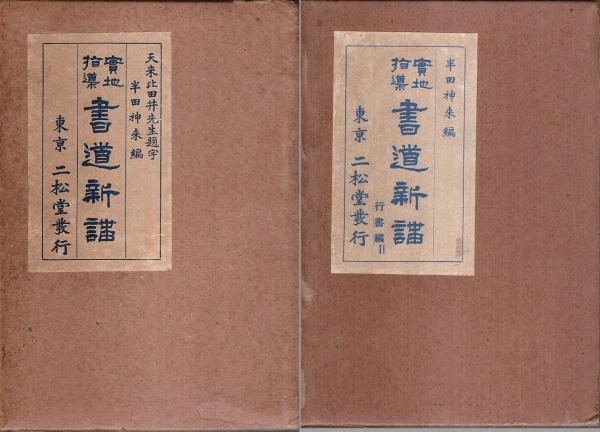 天来比田井先生題字
半田神来編
實地
指導
書道新譜
東京 二松堂發行
半田神来編
實地
指導
書道新譜
行書編 II
東京 二松堂發行